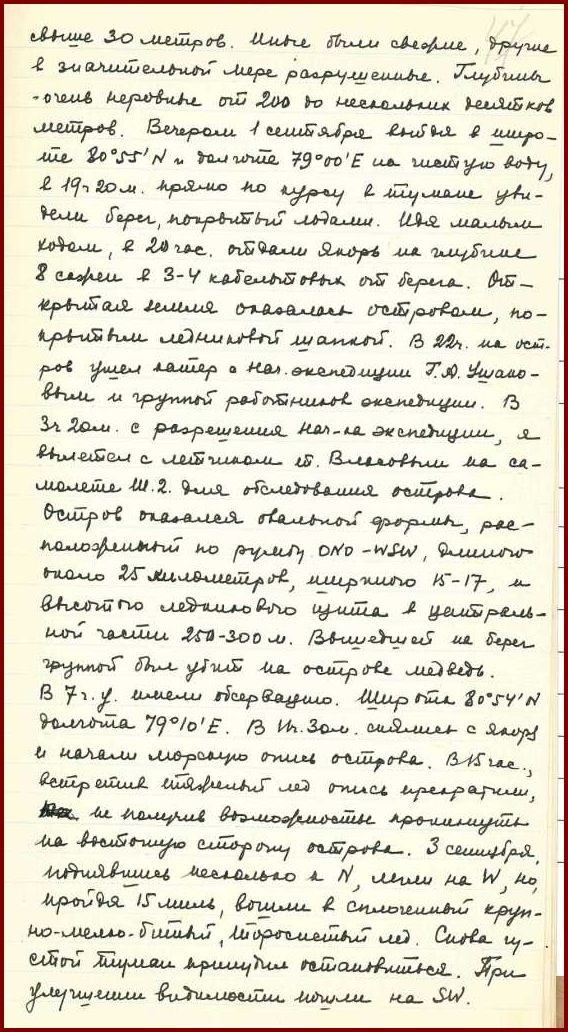 47
свыше 30 метров. Иные были свежие, другие
в значительной мере разрушенные. Глубины
-очень неровные от 200 до нескольких десятков
метров. Вечером 1 сентября выйдя в широ-
те 80°55'N и долготе 79°00'E на чистую воду,
в 19ч 20м. прямо по курсу в тумане уви-
дели берег, покрытый льдами. Идя малым
ходом, в 20 час. отдали якорь на глубине
8 сажен в 3-4 кабельтовых от берега. От-
крытая земля оказалась островом, по-
крытым ледниковой шапкой. В 22ч. на ост-
ров ушел катер с нач. экспедиции Г.А. Ушако-
вым и группой работников экспедиции. В
3ч 20м. с разрешения нач-ка экспедиции, я
вылетел с летчиком т. Власовым на са-
молете Ш.2. для обследования острова.
Остров оказался овальной формы, рас-
положенный по румбу ONO-WSW, длиною
около 25 километров, шириною 15-17, и
высотою ледникового щита в централь-
ной части 250-300 м. Вышедшей на берег
группой был убит на острове медведь.
В 7 г. у. имели обсервацию. Широта 80°54'N
долгота 79°10'E. В 11ч. 30м. снялись с якоря
и начали морскую опись острова. В 15 час.,
встретив тяжелый лед опись прекратили,
не получив возможностью проникнуть
на восточную сторону острова. 3 сентября,
поднявшись несколько к N, легли на W, но,
пройдя 15 миль, вошли в сплоченный круп-
но-мелко-битый, торосистый лед. Снова гу-
стой туман принудил остановиться. При
улучшении видимости пошли на SW.